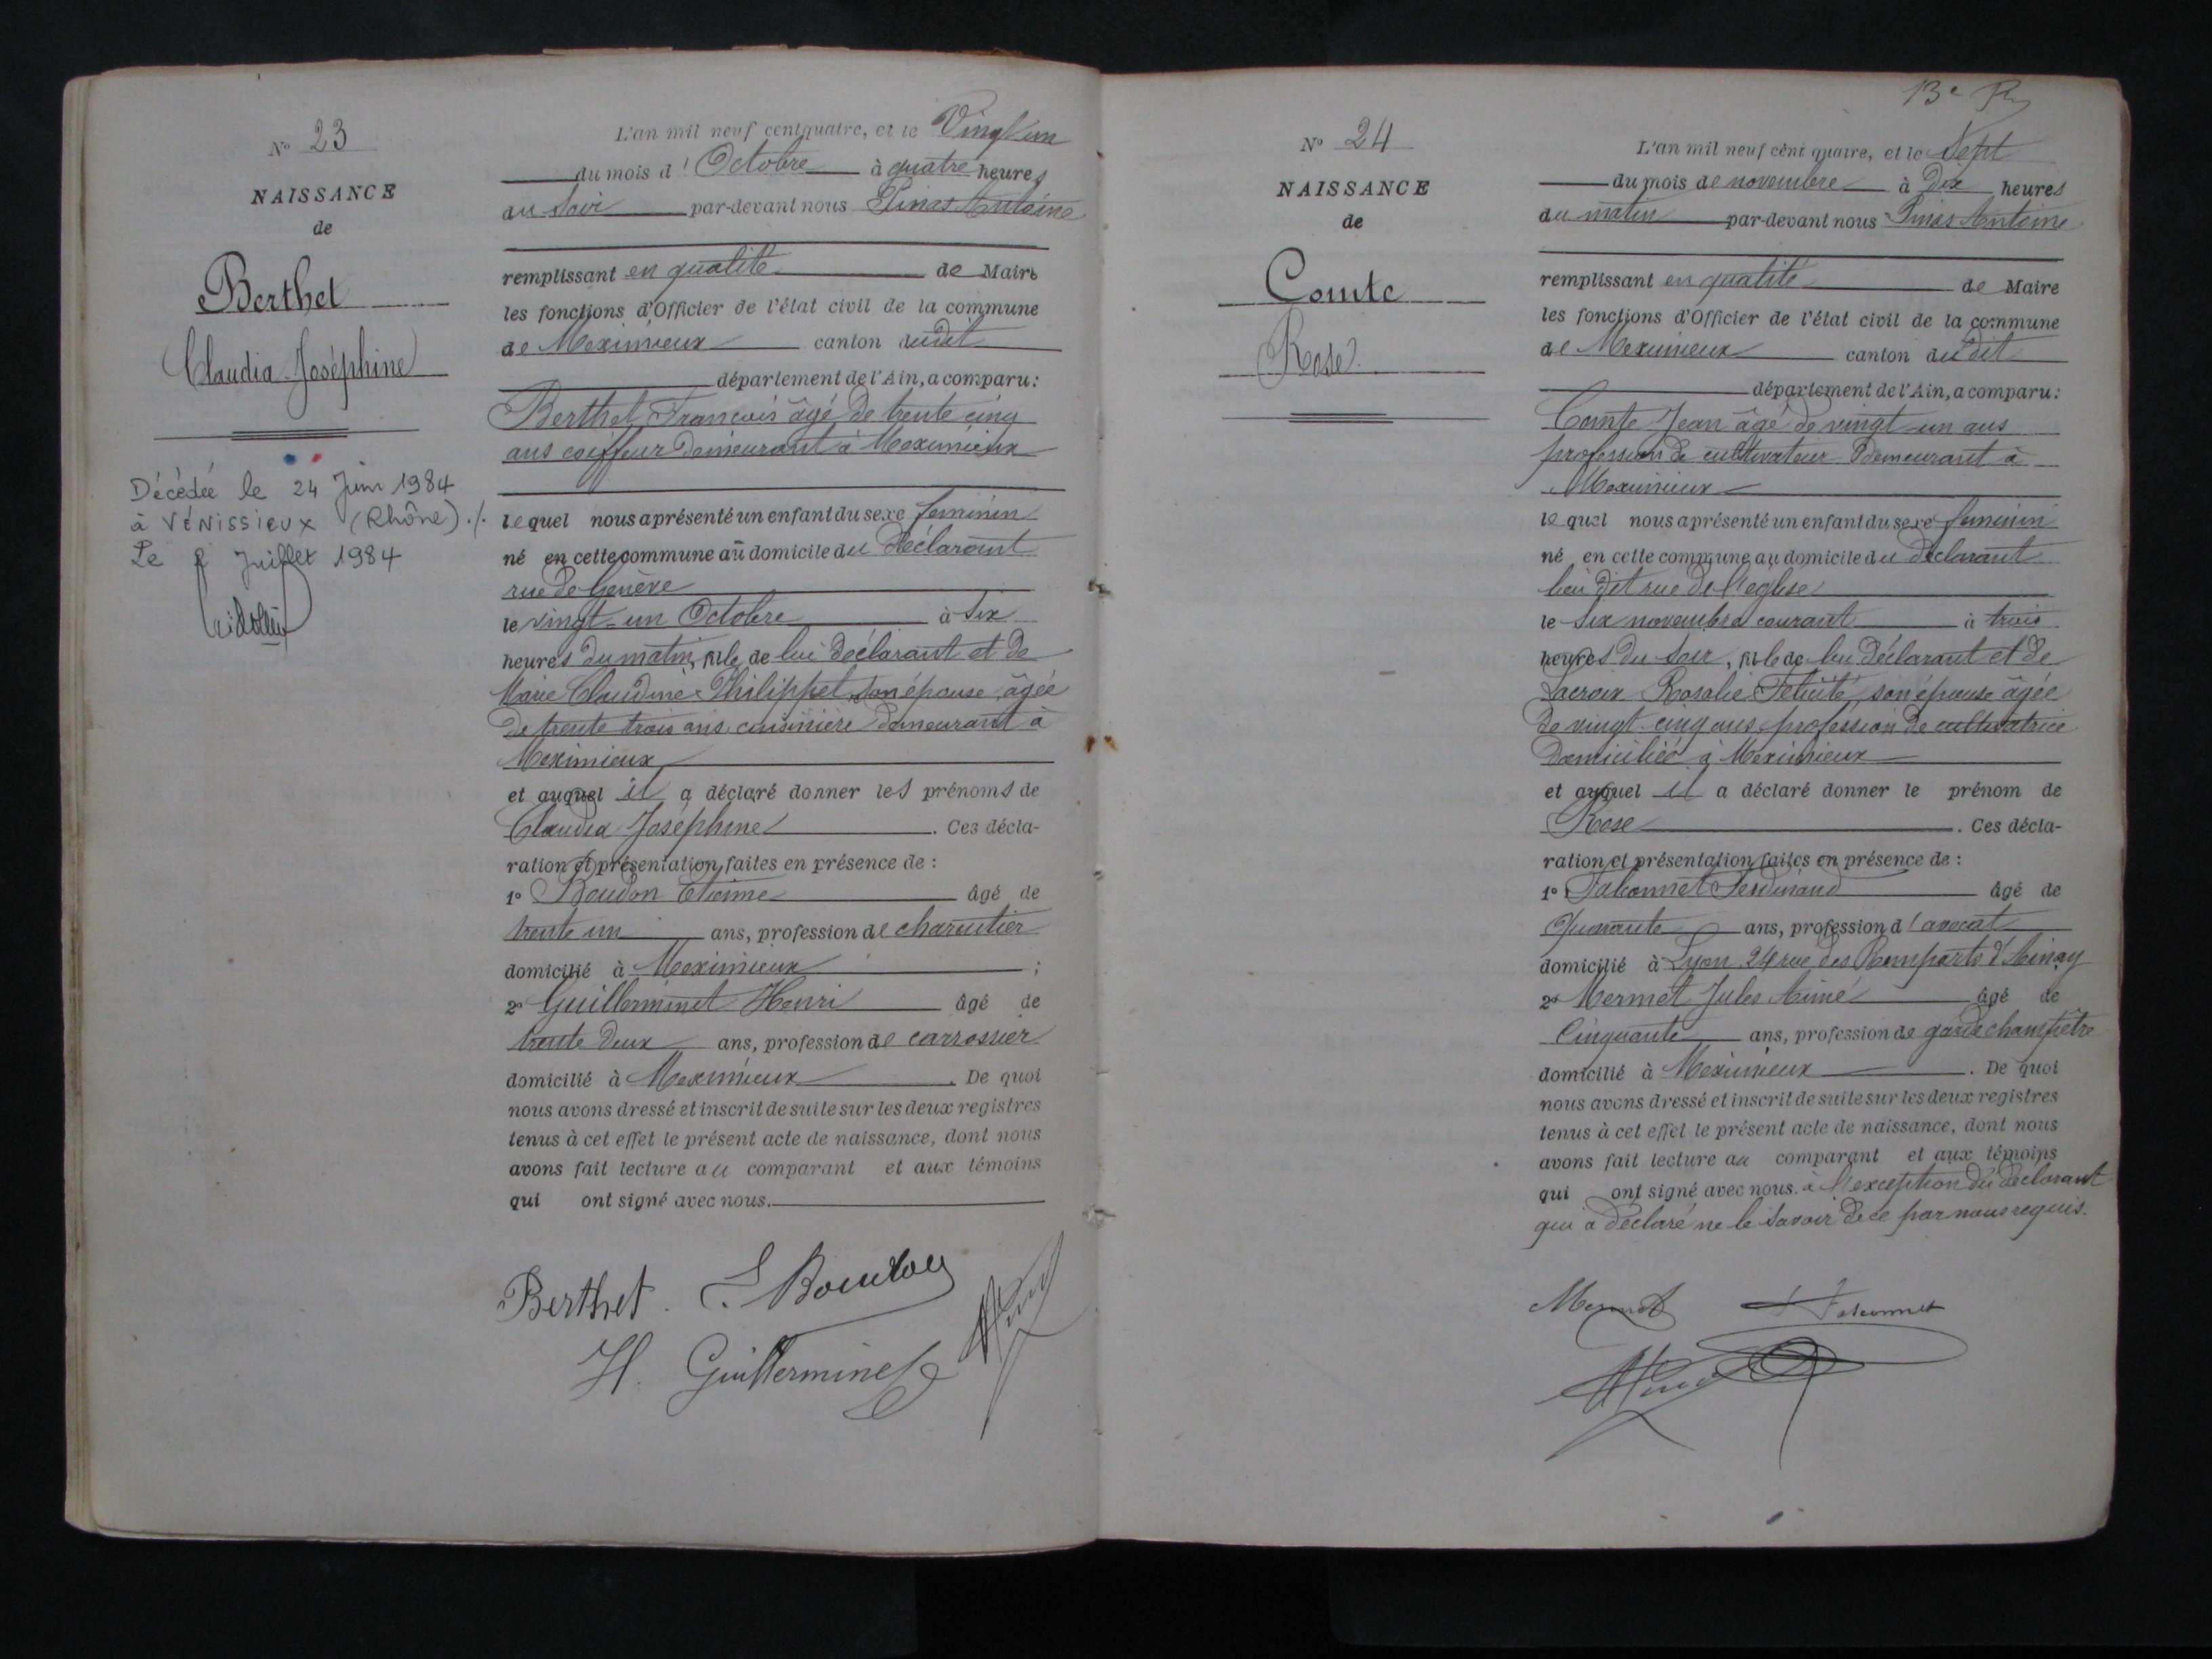 N° 23
NAISSANCE
de
Berthet
Claudia Joséphine
Décédée le 24 Juin 1984
à VÉNISSIEUX (Rhône) ./.
Le Juillet 1984
L'an mil neuf cent quatre, et le Vingt un
du mois d'Octobre à quatre heures
du soir par-devant nous Pinas Antoine
remplissant en qualité de Maire
les fonctions d'Officier de l'état civil de la commune
de Meximieux canton dudit
département de l'Ain, a comparu:
Berthet François âgé de trente cinq
ans coiffeur demeurant à Meximieux
lequel nous a présenté un enfant du sexe feminin
né en cette commune au domicile du déclarant
rue de Genève
le vingt-un Octobre à six
heures du matin, fille de lui déclarant et de
Marie Claudine Philippet son épouse âgée
de trente trois ans, cuisinière demeurant à
Meximieux
et auquel il a déclaré donner les prénoms de
Claudia Joséphine. Ces décla-
ration et présentation faites en présence de :
1° Boudon Etienne âgé de
trente un ans, profession de charcutier
domicilié à Meximieux ;
2° Guillerminet Henri âgé de
trente deux ans, profession de carrossier
domicilié à Meximieux. De quoi
nous avons dressé et inscrit de suite sur les deux registres
tenus à cet effet le présent acte de naissance, dont nous
avons fait lecture au comparant et aux témoins
qui ont signé avec nous.
Berthet. E. Boudon
H. Guillerminet
13e
N° 24
NAISSANCE
de
Comte
Rose
L'an mil neuf cent quatre, et le Sept
du mois de novembre à Dix heures
du matin par-devant nous Pinas Antoine
remplissant en qualité de Maire
les fonctions d'Officier de l'état civil de la commune
de Meximieux canton dudit
département de l'Ain, a comparu:
Comte Jean âgé de vingt-un ans
profession de cultivateur demeurant à
Meximieux
lequel nous a présenté un enfant du sexe feminin
né en cette commune au domicile du déclarant
lieu dit rue de l'eglise
le six novembre courant à trois
heures du soir, fille de lui déclarant et de
Lacroix Rosalie Félicité, son épouse âgée
de vingt-cinq ans profession de cultivatrice
domiciliée à Meximieux
et auquel il a déclaré donner le prénom de
Rose. Ces décla-
ration et présentation faites en présence de :
1° Falconnet Ferdinand âgé de
Quarante ans, profession d'avocat
domicilié à Lyon 24 rue des Remparts d'Ainay
2° Mermet Jules Aimé âgé de
Cinquante ans, profession de garde champêtre
domicilié à Meximieux. De quoi
nous avons dressé et inscrit de suite sur les deux registres
tenus à cet effet le présent acte de naissance, dont nous
avons fait lecture au comparant et aux témoins
qui ont signé avec nous. à l'exception du déclarant
qui a déclaré ne le savoir de ce par nous requis.
Mermet F Falconnet